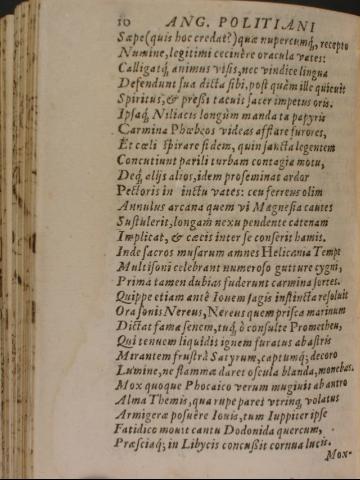 10 ANG. POLITIANI
Sæpe (quis hoc credat?) quæ nupercumq́, recepto
Numine, legitimi cecinêre oracula vates:
Calligatq́, animus visis, nec vindice lingua
Defendunt sua dicta sibi, post quàm ille quieuit
Spiritus, & preßi tacuit sacer impetus oris.
Ipsaq́, Niliacis longùm mandata papyris
Carmina Phœbæos videas afflare furores,
Et cœli spirare fidem, quin sancta legentem
Concutiunt parili turbam contagia motu,
Deq́, alijs alios, idem proseminat ardor
Pectoris in inctu vates: ceu ferreus olim
Annulus arcana quem vi Magnesia cautes
Sustulerit, longam nexu pendente catenam
Implicat, & cæcis inter se conserit hamis.
Inde sacros musarum amnes Heliconia Tempe
Multisoni celebrant numeroso gutture cygni,
Prima tamen dubias fuderunt carmina sortes.
Quippe etiam antè Iouem fagis instincta resoluit
Ora sonis Nereus, Nereus quem prisca marinum
Dictat fama senem, tuq́, ò consulte Prometheu,
Qui tenuem liquidis ignem furatus ab astris
Mirantem frustrà Satyrum, captumq́; decoro
Lumine, ne flammæ daret oscula blanda, monebas.
Mox quoque Phocaico verum mugiuit ab antro
Alma Themis, qua rupe paret vtring, volatus
Armigeræ posuêre Iouis, tum Iuppiter ipse
Fatidico mouit cantu Dodonida quercum,
Præsciaq́; in Libycis concußit cornua lucis.
Mox-